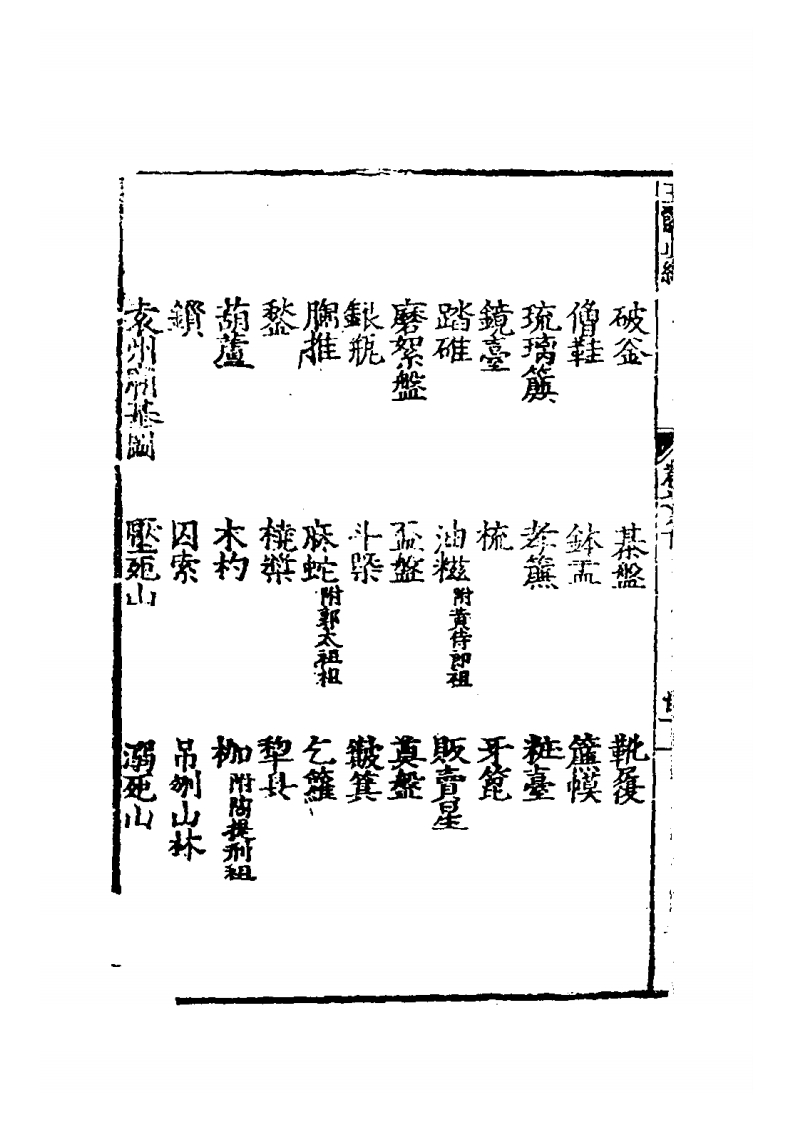 破釜　棊盤　靴履
僧鞋　鉢盂　簾幙
琉璃簱　孝簾　粧臺
鏡臺　梳　牙箆
踏碓　油糍附黃侍郎祖　販賣星
磨絮盤　盃盤　奠盤
銀瓶　斗槩　簸箕
腳推　麻蛇附郭太祖祖　乞籮
鍫　橈槳　犂具
葫蘆　木杓　枷附陶提刑祖
鎖　囚索　吊刎山林
袁州府基圖　壓死山　溺死山